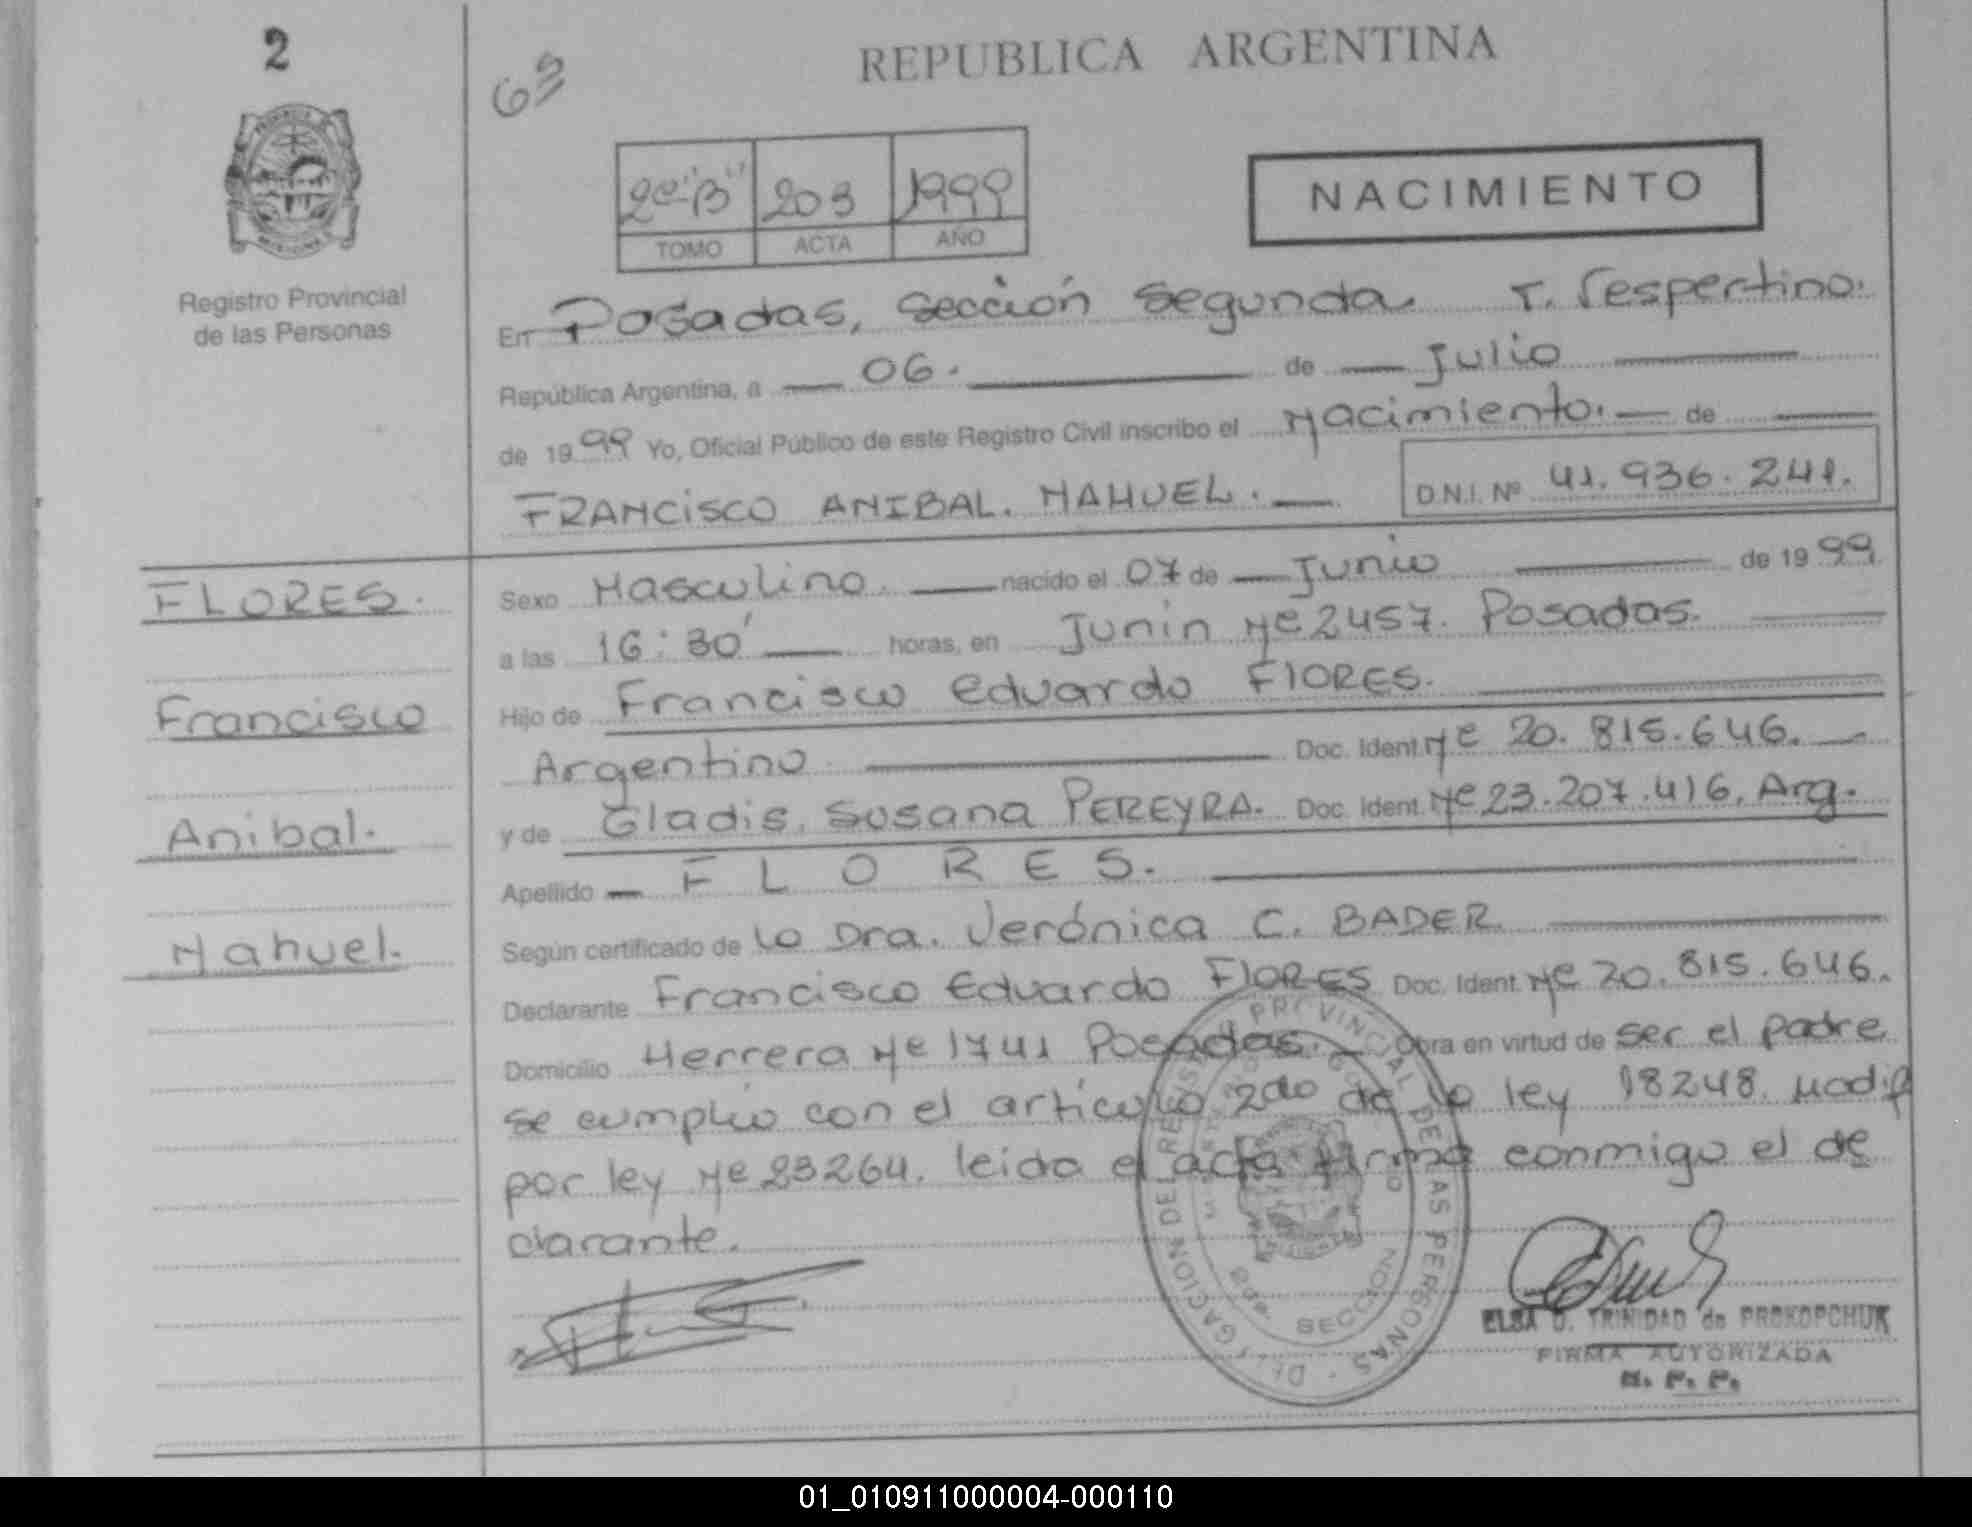 2
63
REPUBLICA ARGENTINA
Registro Provincial
de las Personas
2º "B" 203 1999
TOMO ACTA AÑO
NACIMIENTO
En Posadas, sección segunda. T. Vespertino.
República Argentina, a 06. de Julio
de 1999 Yo, Oficial Público de este Registro Civil inscribo el Nacimiento. de
FRANCISCO ANIBAL. NAHUEL. D.N.I. Nº 41.936.241.
FLORES.
Francisco
Anibal.
Nahuel.
Sexo Masculino. nacido el 07 de Junio de 1999
a las 16:30' horas, en Junin Nº 2457. Posadas.
Hijo de Francisco Eduardo FlORES.
Argentino Doc. Ident. Nº 20.815.646.
y de Gladis. Susana PEREYRA. Doc. Ident. Nº 23.207.416, Arg.
Apellido F L O R E S.
Según certificado de la Dra. Verónica C. BADER
Declarante Francisco Eduardo FlORES Doc. Ident. Nº 20.815.646.
Domicilio Herrera Nº 1741 Posadas. Obra en virtud de ser el padre
se cumplio con el artículo 2do de la ley 18248. Modif
por ley Nº 23264. leida el acta firma conmigo el de
clarante.
DELEGACION DEL REGISTRO PROVINCIAL DE LAS PERSONAS
SECCION 2da
ELSA D. TRINIDAD de PROKOPCHUK
FIRMA AUTORIZADA
R. P. P.
01_010911000004-000110